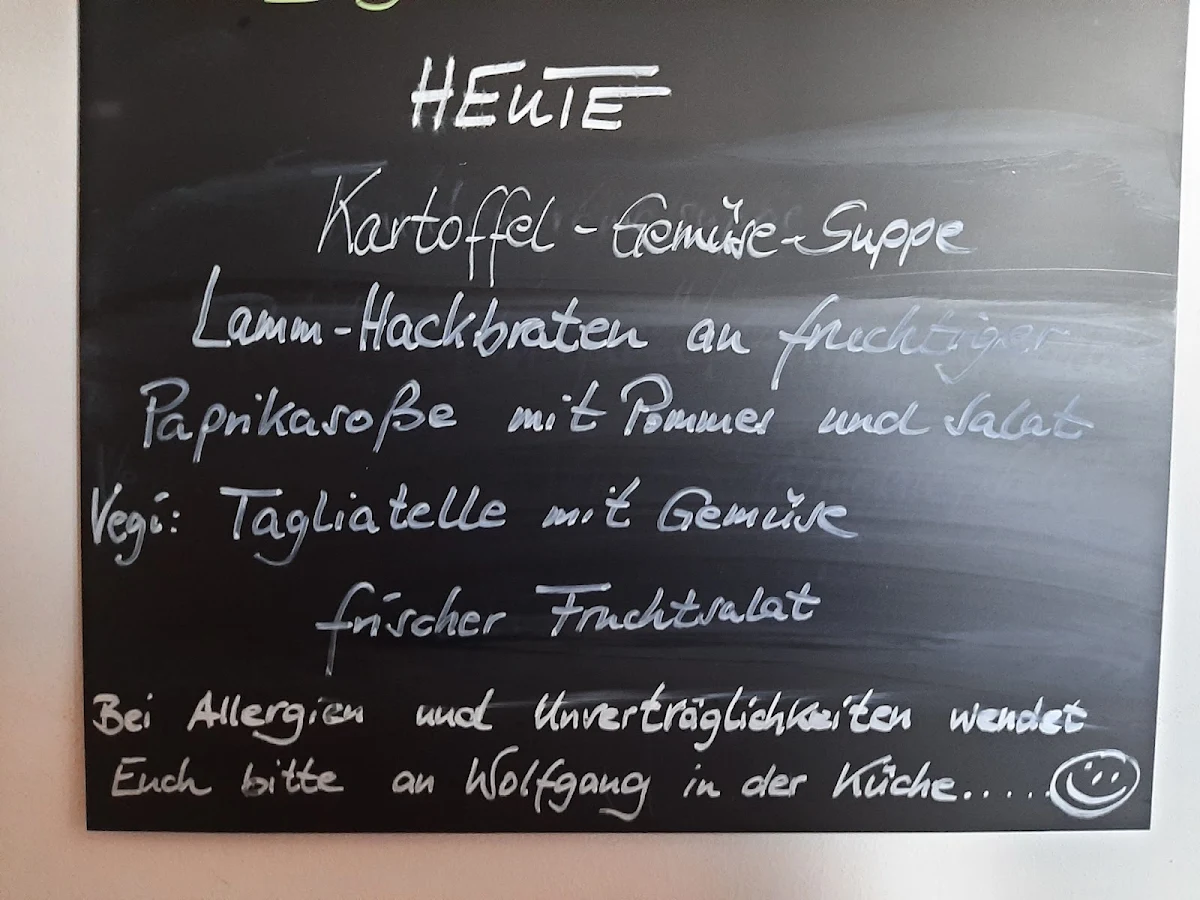 HEUTE
Kartoffel-Gemüse-Suppe
Lamm-Hackbraten an fruchtiger
Paprikasoße mit Pommes und Salat
Vegi: Tagliatelle mit Gemüse
frischer Fruchtsalat
Bei Allergien und Unverträglichkeiten wendet
Euch bitte an Wolfgang in der Küche.....